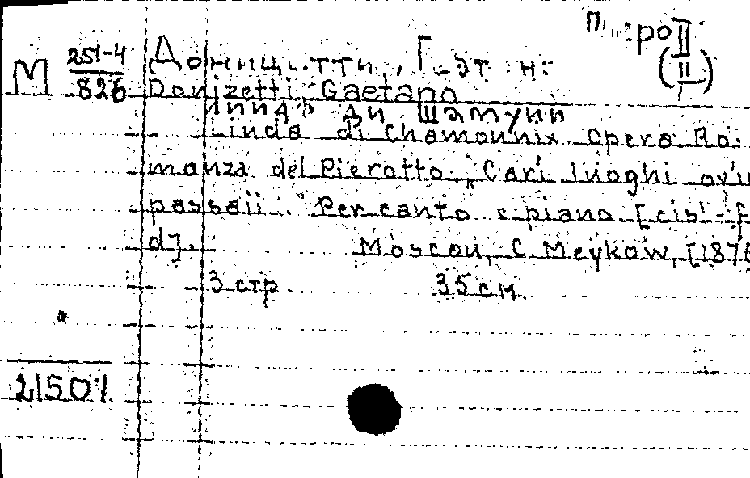 M 251-4
826
Donizetti, Gaetano
ди Шамуни
Linda di Chamounix. Opera. Ro-
manza del Pierotto: „Cari luoghi ov'io
passaii." Per canto e piano [cis'-f
d].
Moscou, C. Meykow, [1876
3 стр 35 см
21501